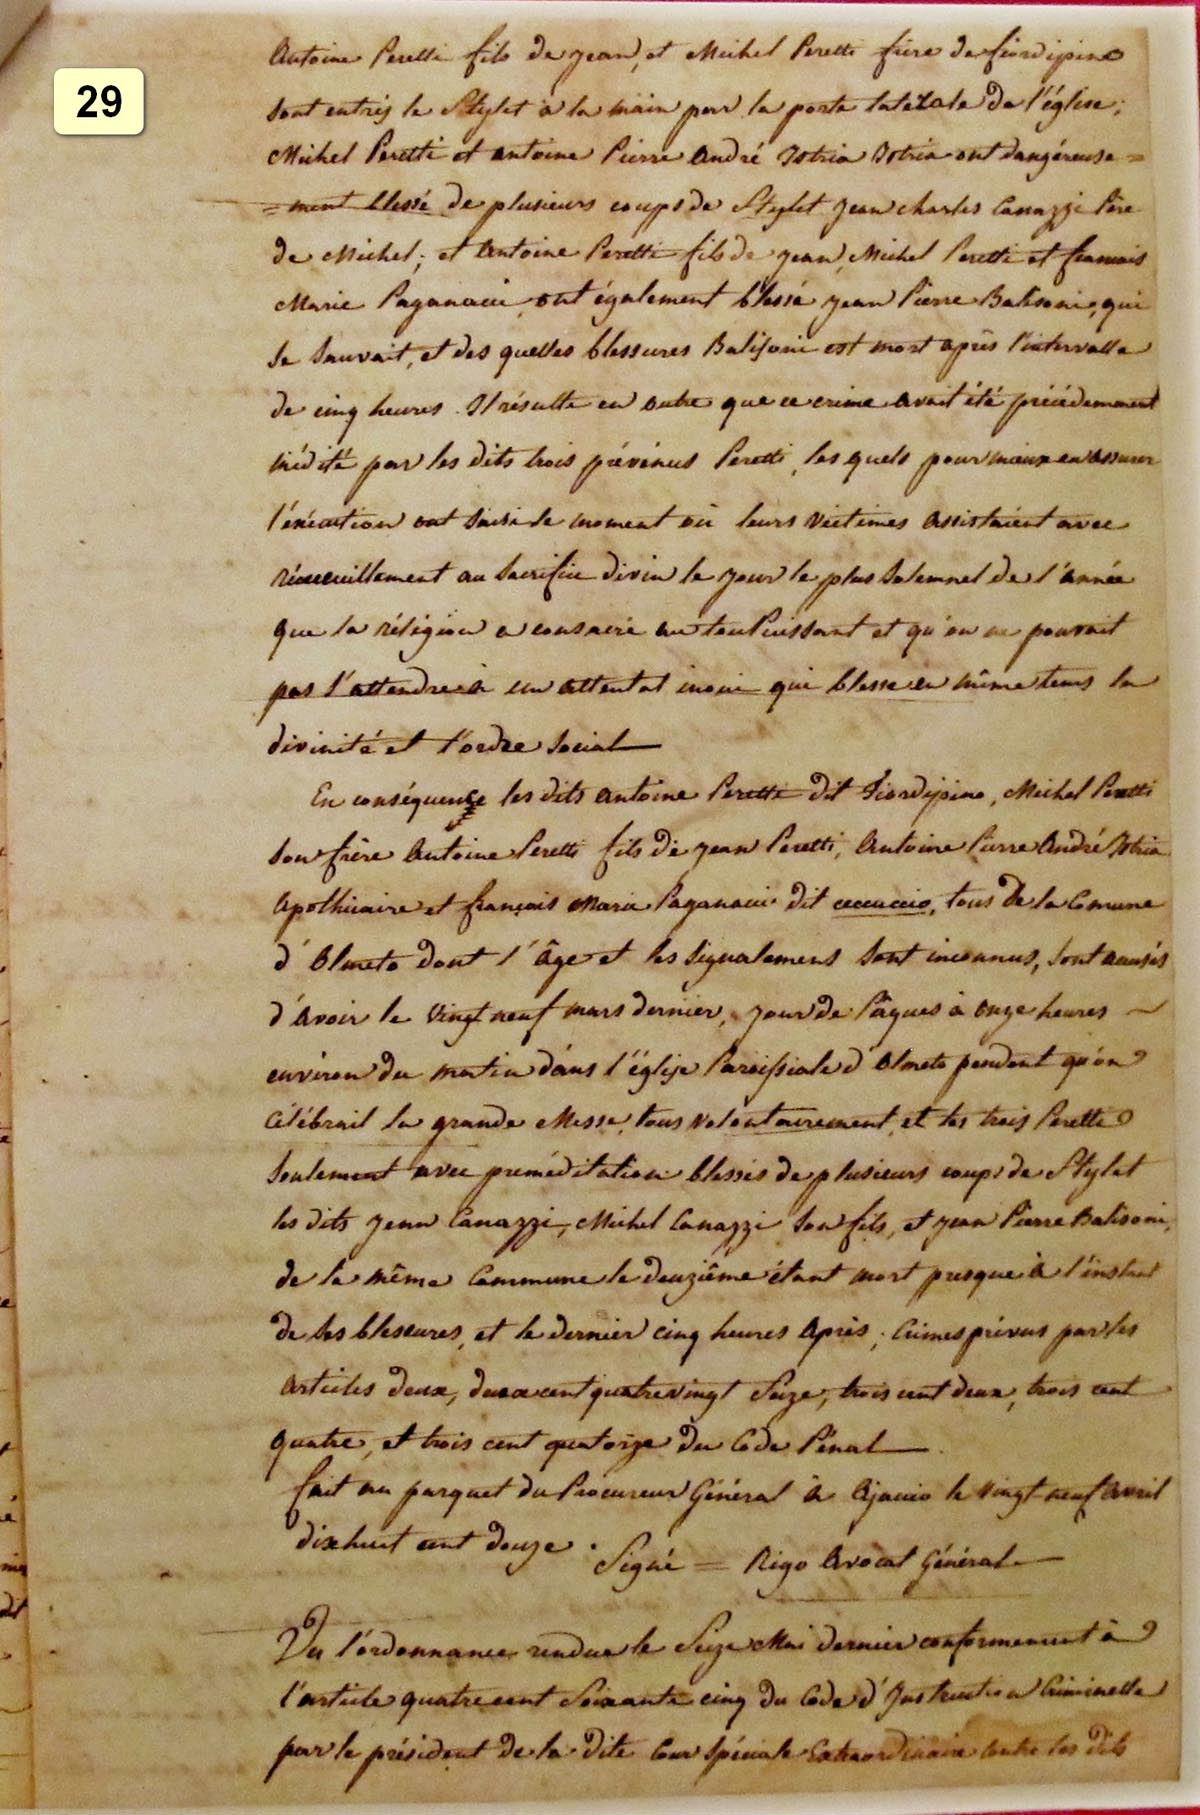 29
Antoine Peretti fils de jean, et Michel Peretti frère de fiordispino
sont entrés le Stylet à la main par la porte latérale de l'église;
Michel Peretti et antoine Pierre André Istria Istria ont dangéreuse=
=ment blessé de plusieurs coups de Stylet jean charles Canazzi Père
de Michel; et Antoine Peretti fils de jean, Michel Peretti et francois
Marie Paganacci ont également blessé jean Pierre Balisoni, qui
se sauvait, et des quelles blessures Balisoni est mort après l'intervalle
de cinq heures. Il résulte en outre que ce crime avait été précédemment
médité par les dits trois prévénus Peretti, les quels pour mieux en assurer
l'éxécution ont saisi le moment où leurs victimes assistaient avec
récueuillement au Sacrifice divin le jour le plus solemnel de l'année
que la réligion a consacré au tout Puissant et qu'on ne pouvait
pas s'attendre à un attentat inoui qui blesse en même tems la
divinité et l'ordre social
En conséquence les dits antoine Peretti dit Fiordispino, Michel Peretti
son frère Antoine Peretti fils de jean Peretti, Antoine Pierre André Istria
apothicaire et françois Marie Paganacci dit ceccuccio, tous de la Comune
d'Olmeto dont l'âge et les signalemens sont inconnus, sont accusés
d'avoir le vingt neuf mars dernier, jour de Pâques à onze heures
environ du matin dans l'église Paroissiale d'Olmeto pendant qu'on
célébrait la grande Messe, tous volontairement, et les trois Peretti
seulement avec preméditation blessés de plusieurs coups de Stylet
les dits jean Canazzi, Michel Canazzi son fils, et jean Pierre Balisoni,
de la même Commune le deuzième étant mort presque à l'instant
de ses blessures, et le dernier cinq heures après; Crimes prévus par les
articles deux, deux cent quatrevingt Seize, trois cent deux, trois cent
quatre, et trois cent quatorze du Code Pénal
fait au parquet du Procureur Général à Ajaccio le vingt neuf avril
dixhuit cent douze. Signé = Rigo Avocat Général
Vu l'ordonnance rendue le Seize Mai dernier conformement à
l'article quatre cent Soixante cinq du Code d'Instruction Criminelle
par le président de la dite Cour Spéciale Extraordinaire contre les dits